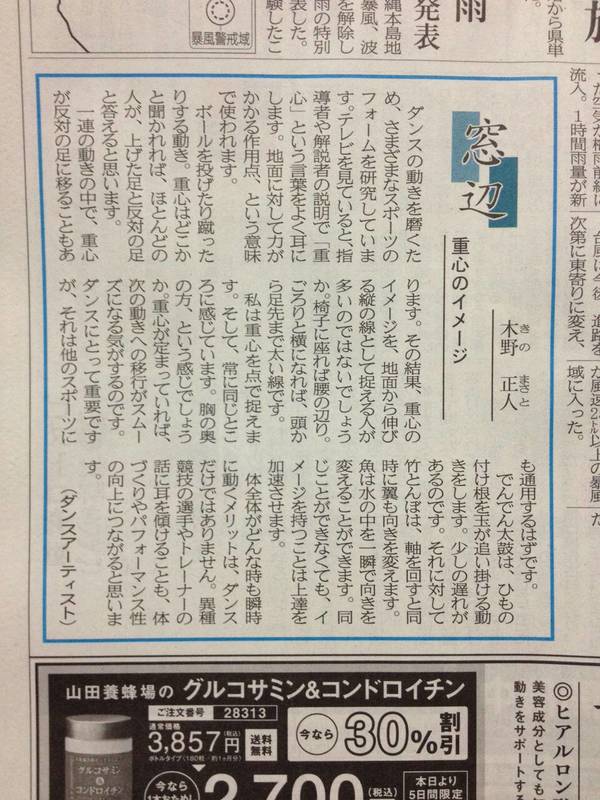 から県単
雨
発表
縄本島地
暴風、波
を解除し
雨の特別
表した。
験したこ
暴風警戒域
流入。1時間雨量が新
次第に東寄りに変え、
域に入った。
窓辺
重心のイメージ
木野 正人
きの まさと
ダンスの動きを磨くた
め、さまざまなスポーツの
フォームを研究していま
す。テレビを見ていると、指
導者や解説者の説明で「重
心」という言葉をよく耳に
します。地面に対して力が
かかる作用点、という意味
で使われます。
ボールを投げたり蹴った
りする動き。重心はどこか
と聞かれれば、ほとんどの
人が、上げた足と反対の足
と答えると思います。
一連の動きの中で、重心
が反対の足に移ることもあ
ります。その結果、重心の
イメージを、地面から伸び
る縦の線として捉える人が
多いのではないでしょう
か。椅子に座れば腰の辺り。
ごろりと横になれば、頭か
ら足先まで太い線です。
私は重心を点で捉えま
す。そして、常に同じとこ
ろに感じています。胸の奥
の方、という感じでしょう
か。重心が定まっていれば、
次の動きへの移行がスムー
ズになる気がするのです。
ダンスにとって重要です
が、それは他のスポーツに
も通用するはずです。
でんでん太鼓は、ひもの
付け根を玉が追い掛ける動
きをします。少しの遅れが
あるのです。それに対して
竹とんぼは、軸を回すと同
時に翼も向きを変えます。
魚は水の中を一瞬で向きを
変えることができます。同
じことができなくても、イ
メージを持つことは上達を
加速させます。
体全体がどんな時も瞬時
に動くメリットは、ダンス
だけではありません。異種
競技の選手やトレーナーの
話に耳を傾けることも、体
づくりやパフォーマンス性
の向上につながると思いま
す。
（ダンスアーティスト）
山田養蜂場の グルコサミン&コンドロイチン
ご注文番号 28313
通常価格
3,857円(税込)
送料無料
ボトルタイプ(180粒／約1ヵ月分)
今なら 30%割引
グルコサミン
&
コンドロイチン
今なら
2,700(税込)
本日より
5日間限定
◎ヒアルロン
美容成分としても
動きをサポートする